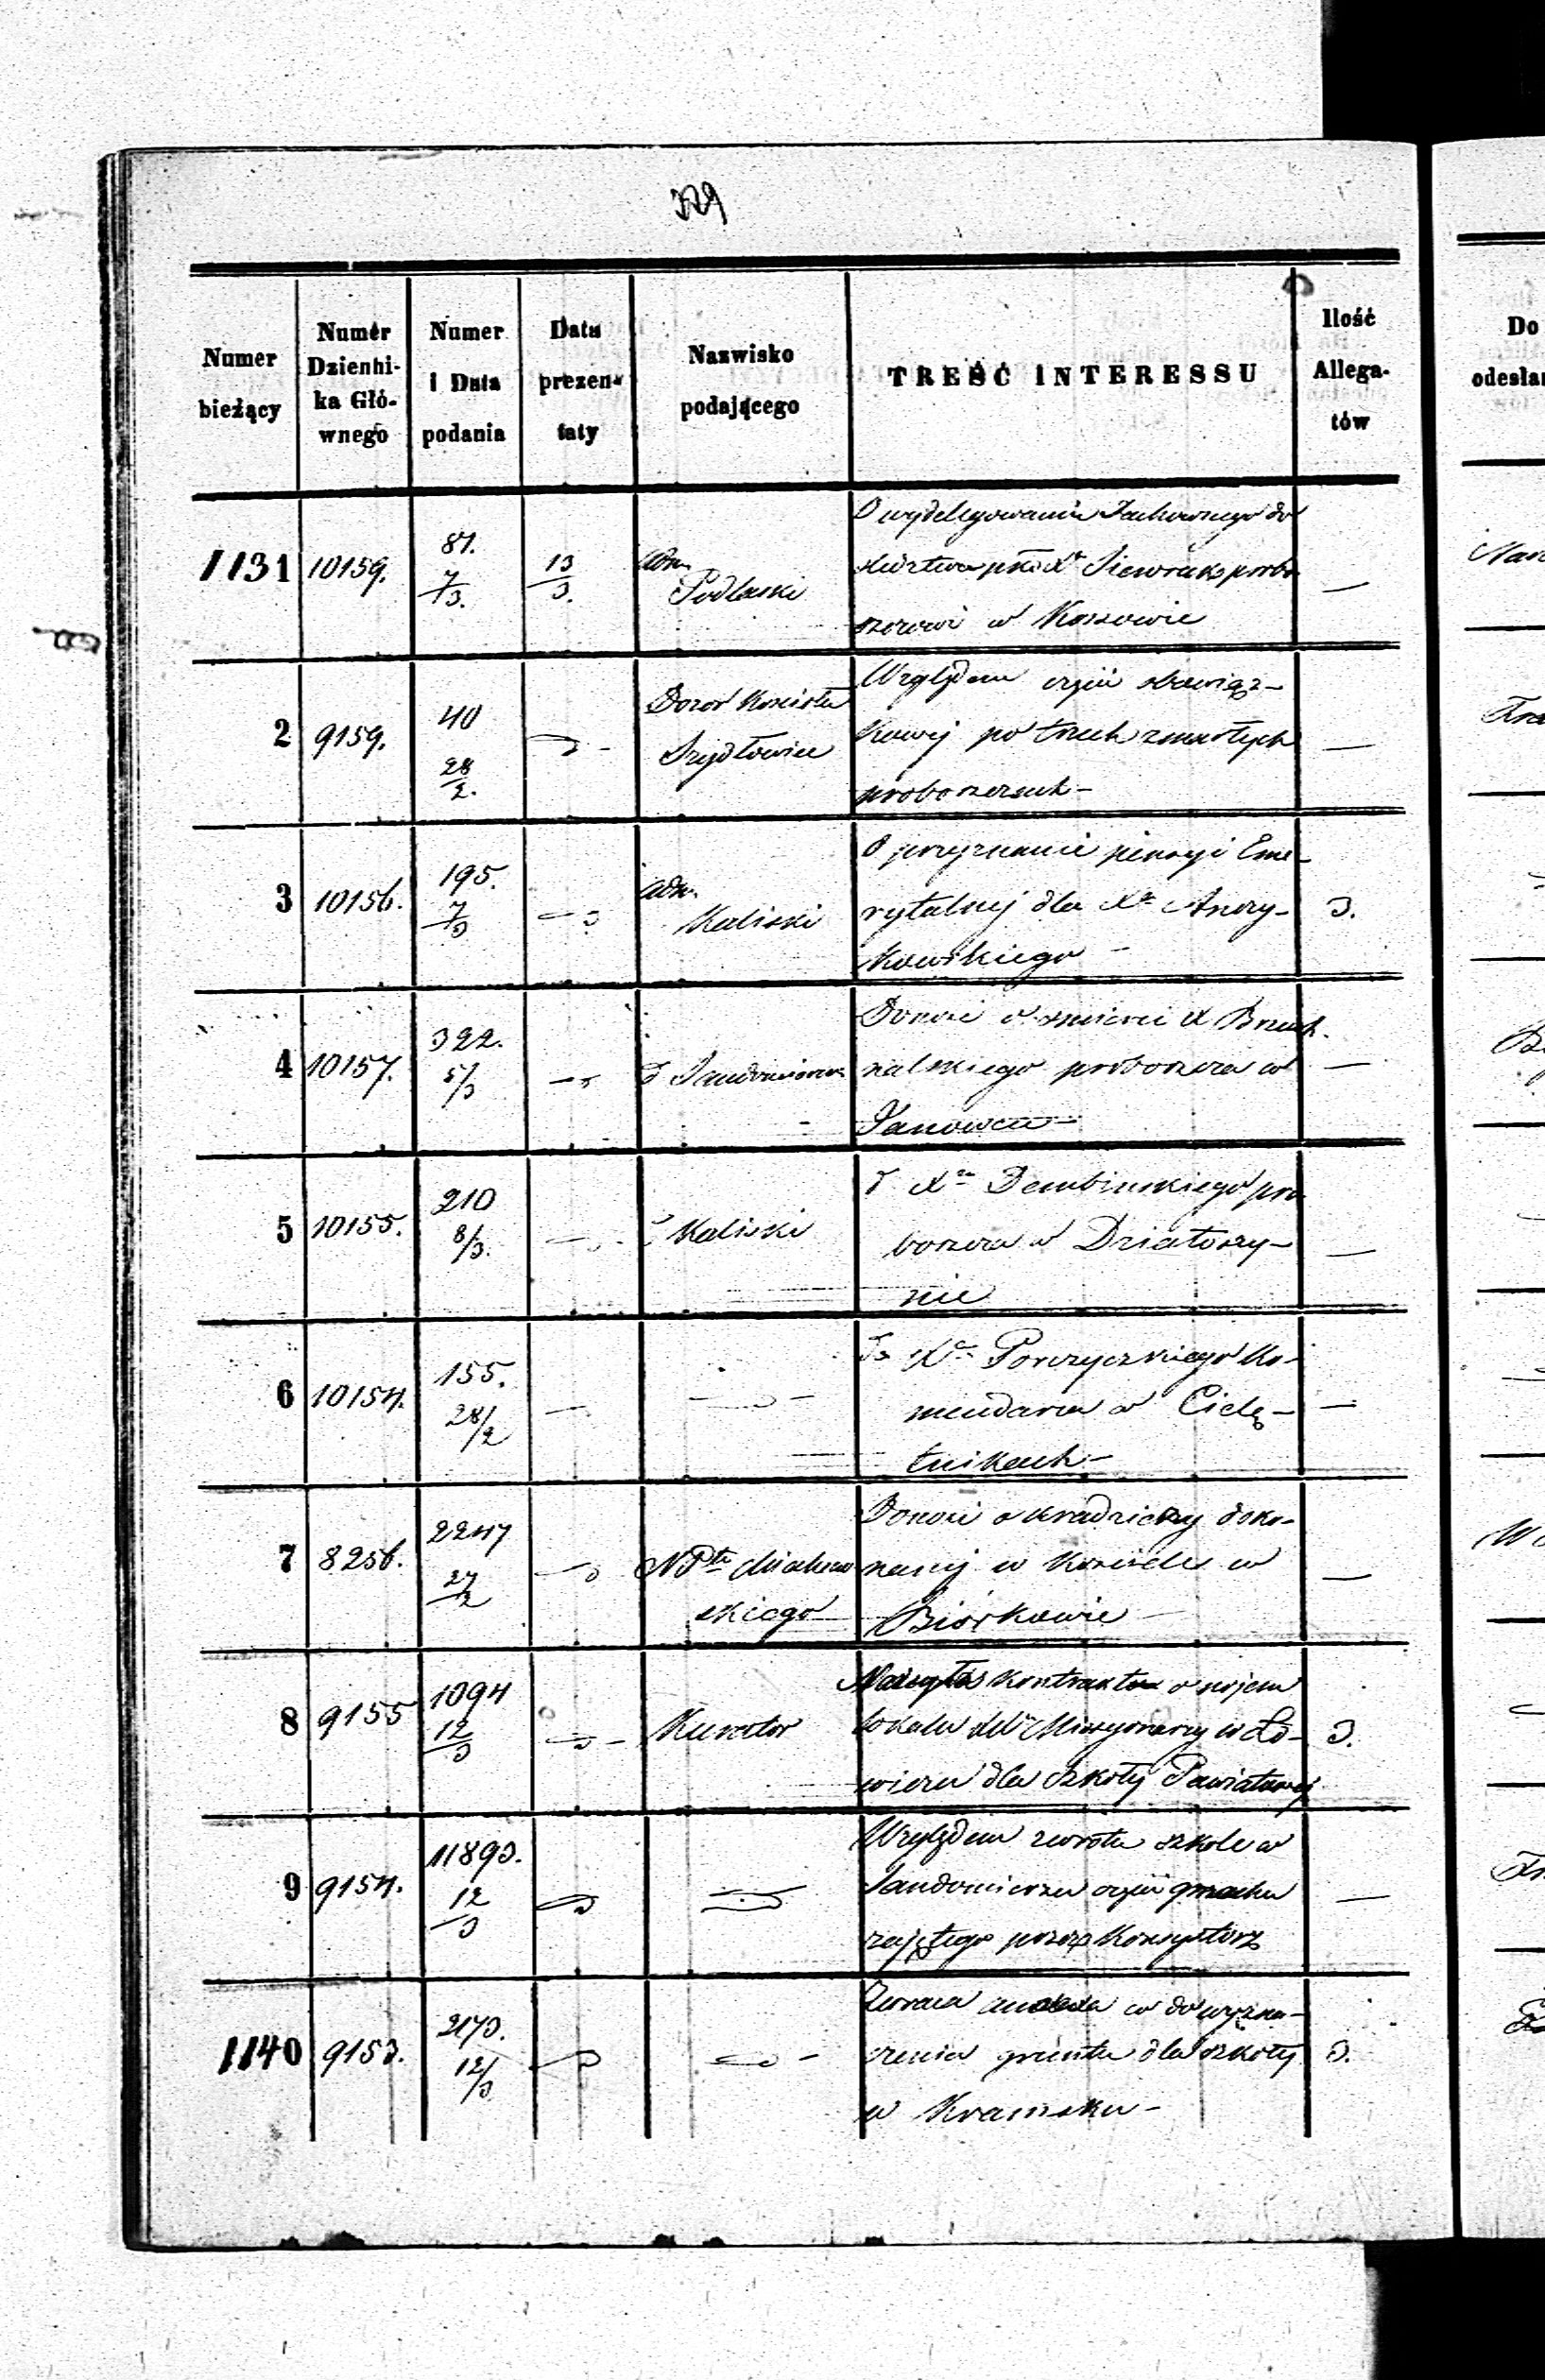 379
Numer bieżący
Numer Dziennika Głównego
Numer i Data podania
Data prezentaty
Nazwisko podającego
TREŚĆ INTERESSU
Ilość Allegatów
Do
odesłan
1131 10159. 81. 7/3. 13/3. Adm. Podlaski
O wydelegowanie Duchownego do
śledztwa pko Xu Siewruk probo
szczowi w Kossowie —
2 9159. 40 28/2. Dozór Kościoła Szydłowiec
Względem części obowiąz-
kowej po trzech zmarłych
proboszczach —
3 10156. 195. 7/3 Adm. Kaliski
O przyznanie pensyi Eme-
rytalnej dla Xa
kowskiego — 3.
4 10157. 322. 5/3 Sandomierski
Donosi o śmierci X
nalskiego proboszcza w
Janowcu —
5 10155. 210 8/3. Kaliski
Xa Dembinskiego pro
boszcza w Działoszy-
nie —
6 10154. 155. 28/2
Xa Porczyczkiego Ko-
mendarza w Cielę-
tnikach —
7 8256. 2247 27/2 N Ptu Miechow
skiego
Donosi o kradzieży doko-
nanej w kościele w
Biórkowie —
8 9155 1094 12/3 Kurator
kontraktu o najem
lokalu XX Missyonarzy w Ło-
wiczu dla Szkoły Powiatowej 3.
9 9154. 11893. 12/3
Względem zwrotu szkole w
Sandomierzu części gmachu
zajętego przez Konsystorz —
1140 9153. 2173. 12/3
Zwraca w do wyzna-
czenia gruntu dla szkoły 3.
w Kramsku —